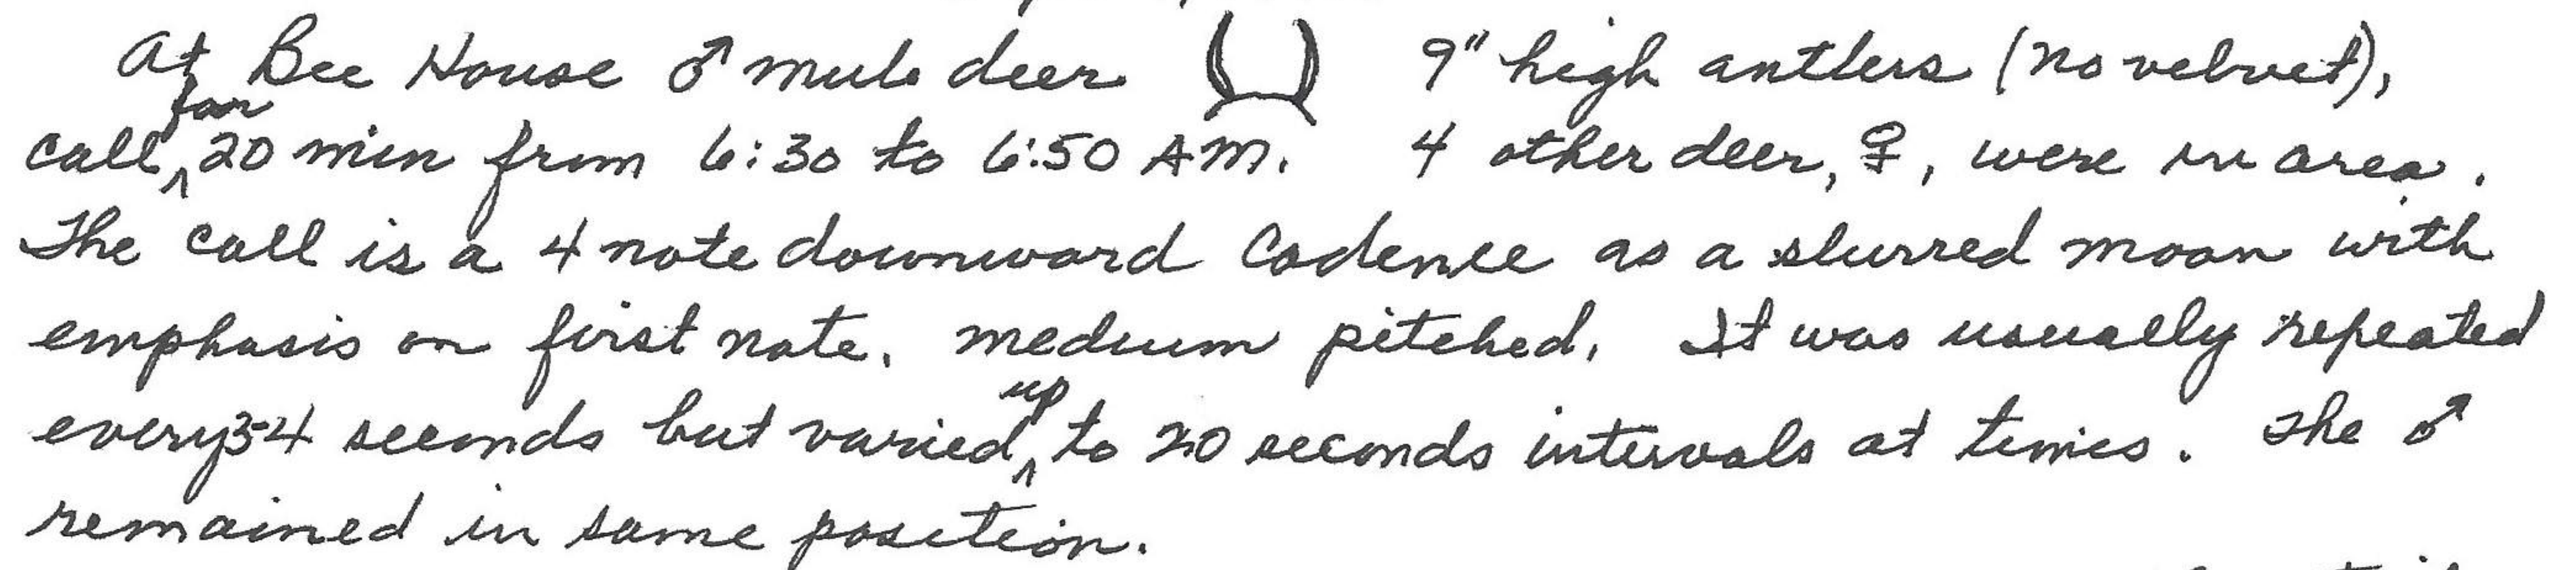 At Bee House ♂ mule deer 9" high antlers (no velvet),
call for 20 min from 6:30 to 6:50 AM. 4 other deer, ♀, were in area.
The call is a 4 note downward cadence as a slurred moan with
emphasis on first note, medium pitched. It was usually repeated
every 3-4 seconds but varied up to 20 seconds intervals at times. The ♂
remained in same position.